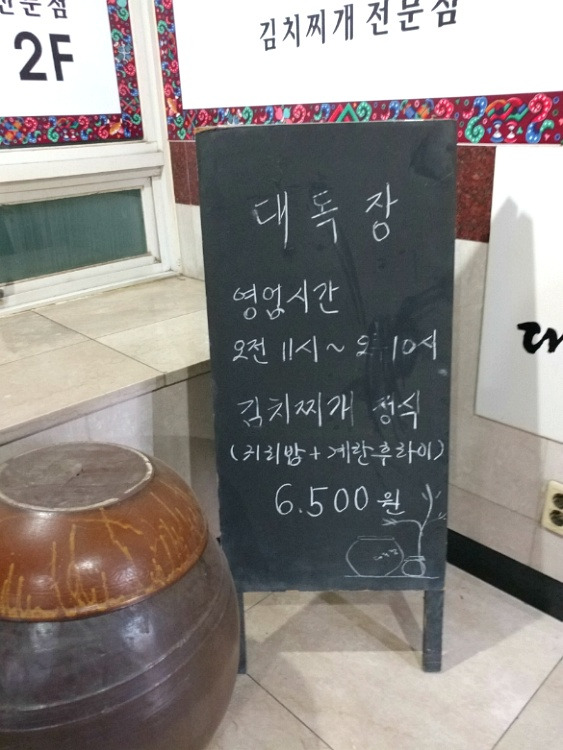 전문점
2F
김치찌개 전문점
대독장
영업시간
오전 11시 ~ 오 10시
김치찌개 정식
(카리밥 + 계란후라이)
6.500원